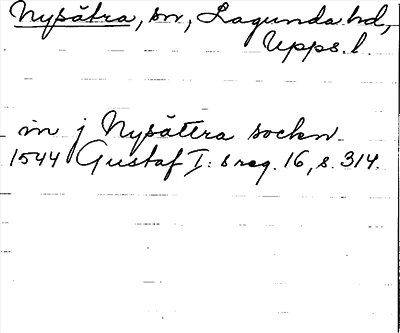 Nysätra, sn, Lagunda hd,
Upps. l.
in j Nysättra sockn
1544 Gustaf I: s reg. 16, s. 314.